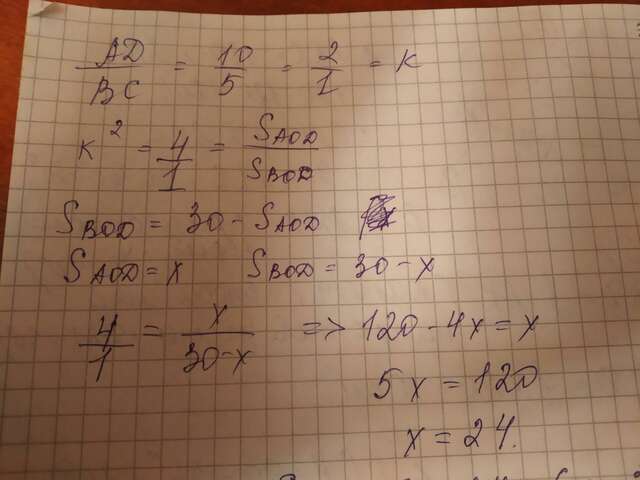 AD/BC = 10/5 = 2/1 = K
K² = 4/1 = SAOD/SBOD
SBOD = 30 - SAOD
SAOD = x SBOD = 30 - x
4/1 = x/30-x => 120 - 4x = x
5x = 120
x = 24.